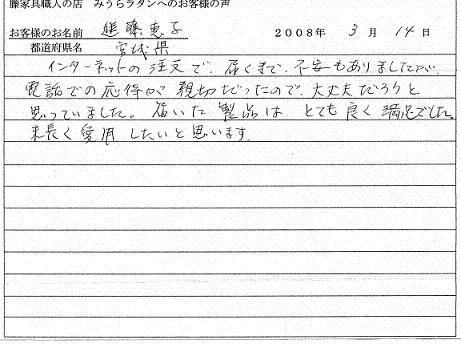 籐家具職人の店 みうらラタンへのお客様の声
お客様のお名前 進藤恵子 2008年 3月 14日
都道府県名 宮城県
インターネットの注文で、届くまで、不安もありましたが、
電話での応待が親切だったので、大丈夫だろうと
思っていました。届いた製品は とても良く満足でした。
末長く愛用したいと思います。